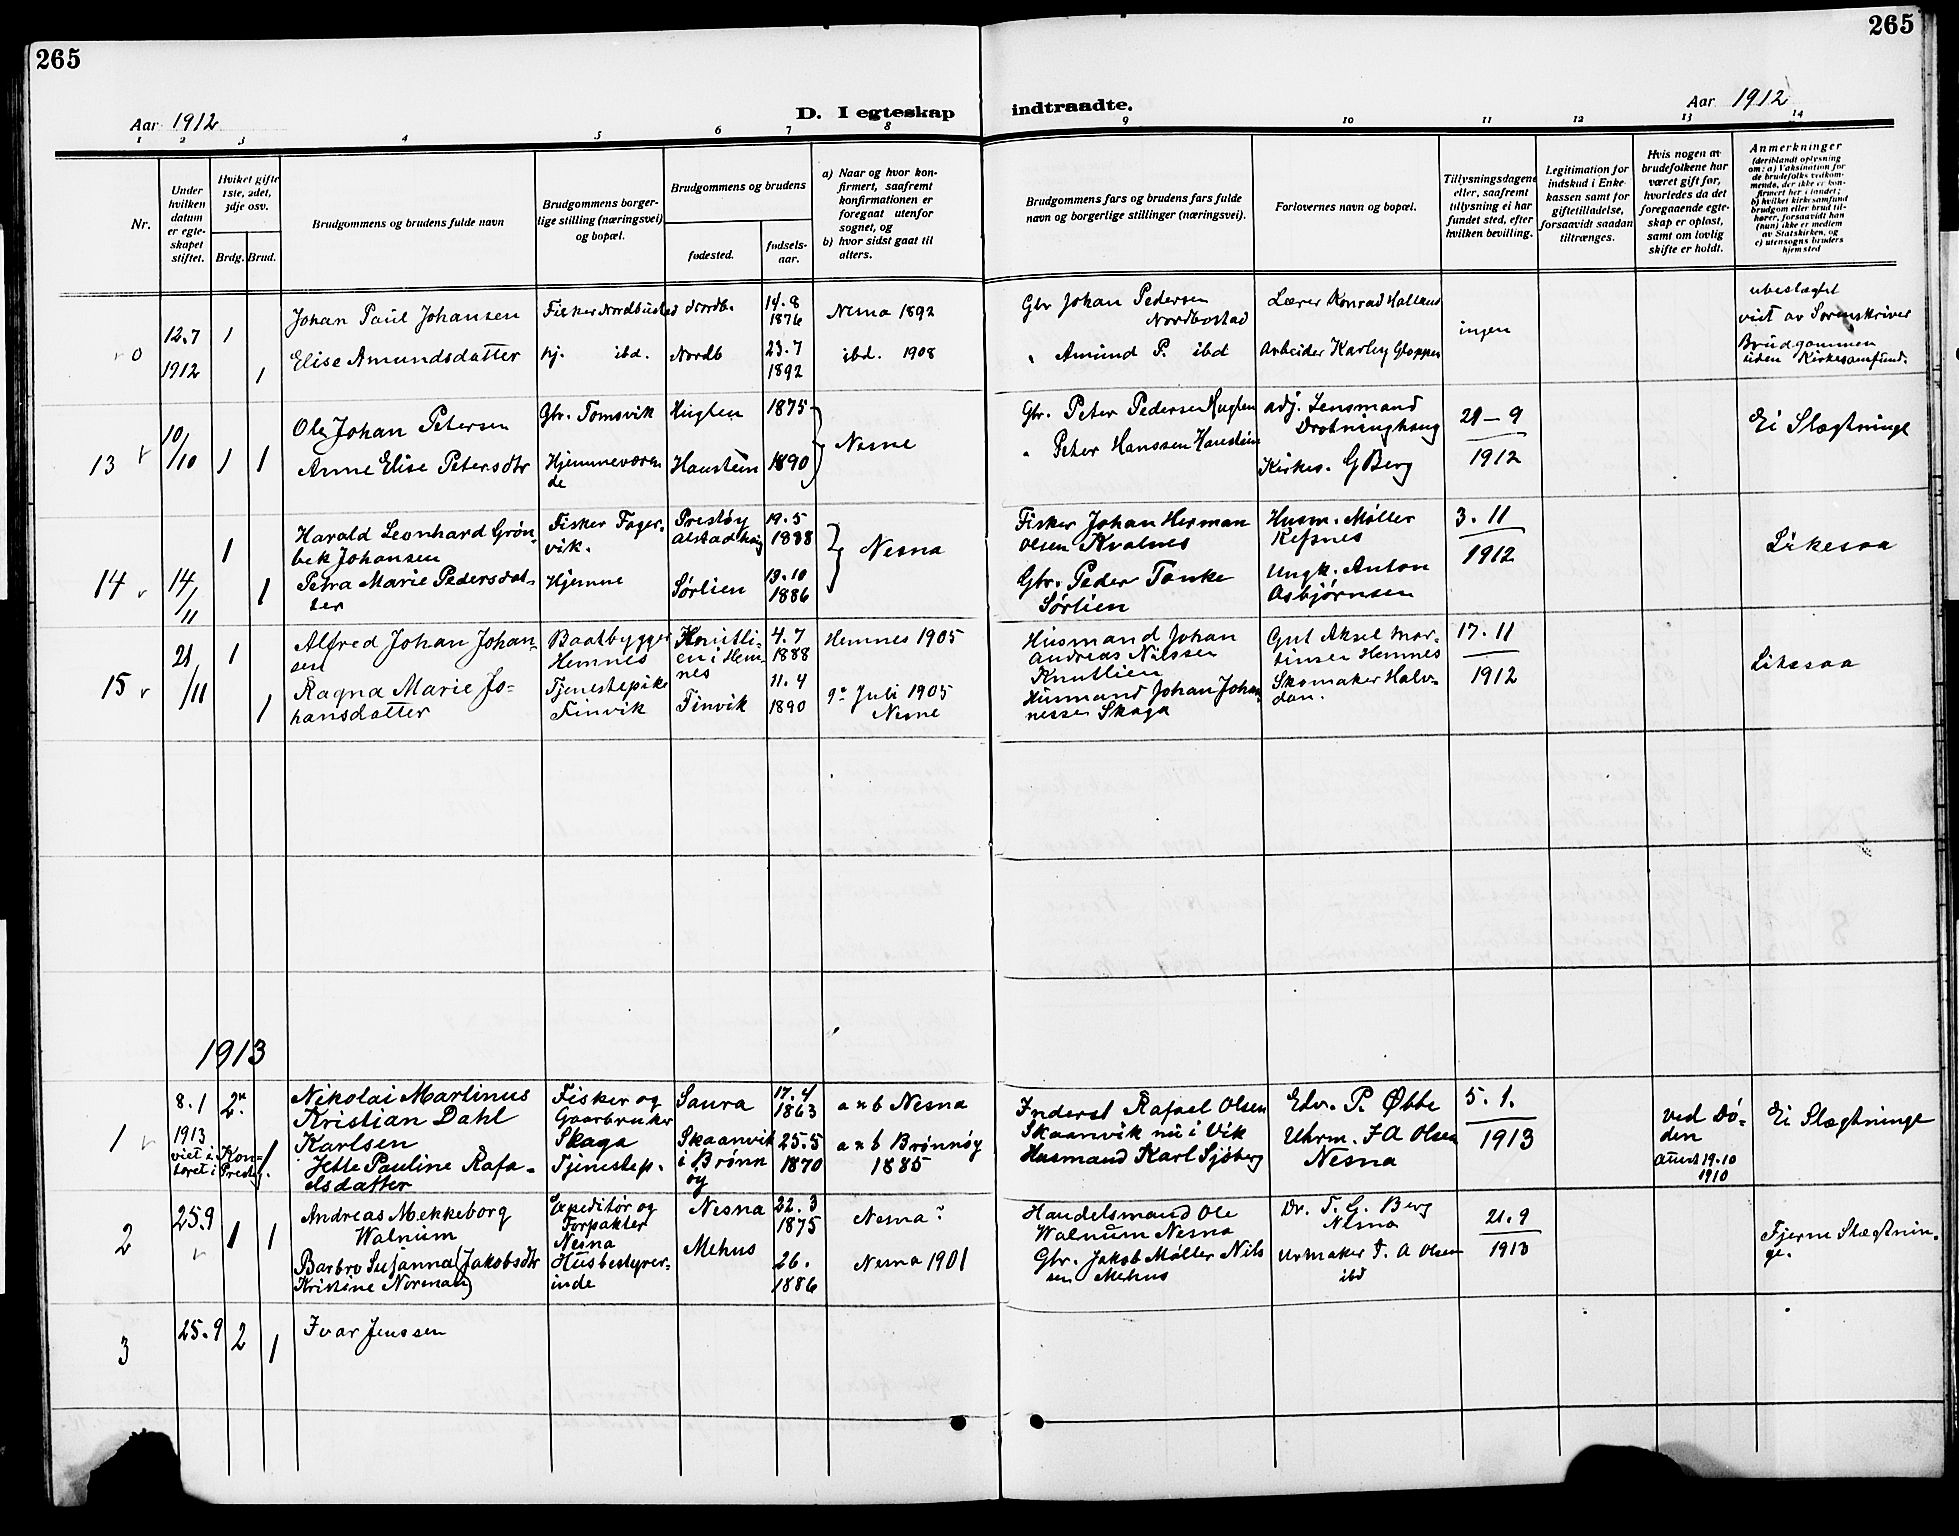 265
265
Aar 1912
D. I egteskap
indtraadte.
Aar 1912
1 2 3 4 5 6 7 8 9 10 11 12 13 14
Nr.
Under hvilken datum er egte-skapet stiftet.
Hvilket gifte 1ste, 2det, 3dje osv.
Brdg. Brud.
Brudgommens og brudens fulde navn
Brudgommens borger-lige stilling (næringsvei) og bopæl.
Brudgommens og brudens
fødested.
fødsels-aar.
a) Naar og hvor kon-firmert, saafremt konfirmationen er foregaat utenfor sognet, og
b) hvor sidst gaat til alters.
Brudgommens fars og brudens fars fulde navn og borgerlige stillinger (næringsvei).
Forlovernes navn og bopæl.
Tillysningsdagene eller, saafremt tillysning ei har fundet sted, efter hvilken bevilling.
Legitimation for indskud i Enke-kassen samt for giftetilladelse, forsaavidt saadan tiltrænges.
Hvis nogen av brudefolkene har været gift før, hvorledes da det foregaaende egte-skap er opløst, samt om lovlig skifte er holdt.
Anmerkninger
(deriblandt oplysning om: a) Vaksination for de brudefolks vedkom-mende, der ikke er kon-firmert her i landet; b) hvilket kirkesamfund brudgom eller brud til-hører, forsaavidt han (hun) ikke er medlem av Statskirken, og c) utensogns bruders hjemsted
0
12.7
1912
1
1
Johan Paul Johansen
Elise Amundsdatter
Fisker Nordbustad
hj. ibd.
Nordb.
Nordb
14.8
1876
23.7
1892
Nesna 1892
ibd. 1908
Gbr Johan Pedersen
Nordbostad
" Amund P. ibd
Lærer Konrad Halland
Arbeider Karley Gloppen
ingen
ubeslægtet
viet av Sorenskriver
Brudgommen
uden Kirkesamfund.
13
10/10
1
1
Ole Johan Petersen
Anne Elise Petersdtr
Gbr. Tomsvik
Hjemmeværen
de
Hugten
Haustein
1875
1890
Nesne
Gbr. Peter Pedersen Hugten
" Peter Hanssen Haustein
adj. Lensmand
Drotninghaug
Kirkes. G Berg
21–9
1912
Ei Slægtninge
14
14/11
1
1
Harald Leonhard Grøn-
bek Johansen
Petra Marie Pedersdat-
ter
Fisker Fager-
vik.
Hjemme
Prestøy
Alstadhaug
Sørlien
19.5
1888
19.10
1886
Nesna
Fisker Johan Herman
Olsen Kvalnes
Gbr. Peder Tonke
Sørlien
Husm. Møller
Refsnes
Ungk. Anton
Asbjørnsen
3.11
1912
Likesaa
15
21/11
1
1
Alfred Johan Johan-
sen
Ragna Marie Jo-
hansdatter
Baatbygger
Hemnes
Tjenestepike
Finvik
Knutli-
en i Hem-
nes
Finvik
4.7
1888
11.4
1890
Hemnes 1905
9de Juli 1905
Nesne
Husmand Johan
Andreas Nilssen
Knutlien
Husmand Johan Johan
nessen Skaga
Gut Aksel Mar-
tinsen Hemnes
Skomaker Halv-
dan.
17.11
1912
Likesaa
1913
1
8.1
1913
viet i Kon-
toret i Prestg.
2n.
1
Nikolai Martinus
Kristian Dahl
Karlsen
Jette Pauline Rafa-
elsdatter
Fisker og
Gaarbruker
Skaga
Tjenestep.
Saura
Skaanvik
i Brønn
øy
17.4
1863
25.5
1870
a x b Nesna
a x b Brønnøy
1885
Inderst Rafael Olsen
Skaanvik nu i Vik
Husmand Karl Sjøberg
Edv. P. Øbbe
Uhrm. J A Olsen
Nesna
5.1.
1913
ved Dø-
den
attest 19.10
1910
Ei Slægtninge
2
25.9
1
1
Andreas Mekkeborg
Walnum
Barbro Susanna (Jakobsdtr
Kristine Norman)
Expeditør og
Forpakter
Nesna
Husbestyrer-
inde
Nesna
Mehus
22.3
1875
26.
1886
Nesna?
Nesna 1901
Handelsmand Ole
Walnum Nesna
Gbr. Jakob Møller Nils
sen Mehus
Dr. T. G. Berg
Nesna
Urmaker J. A Olsen
ibd
21.9
1913
Fjerne Slægtnin-
ge.
3
25.9
2
1
Ivar Jenssen